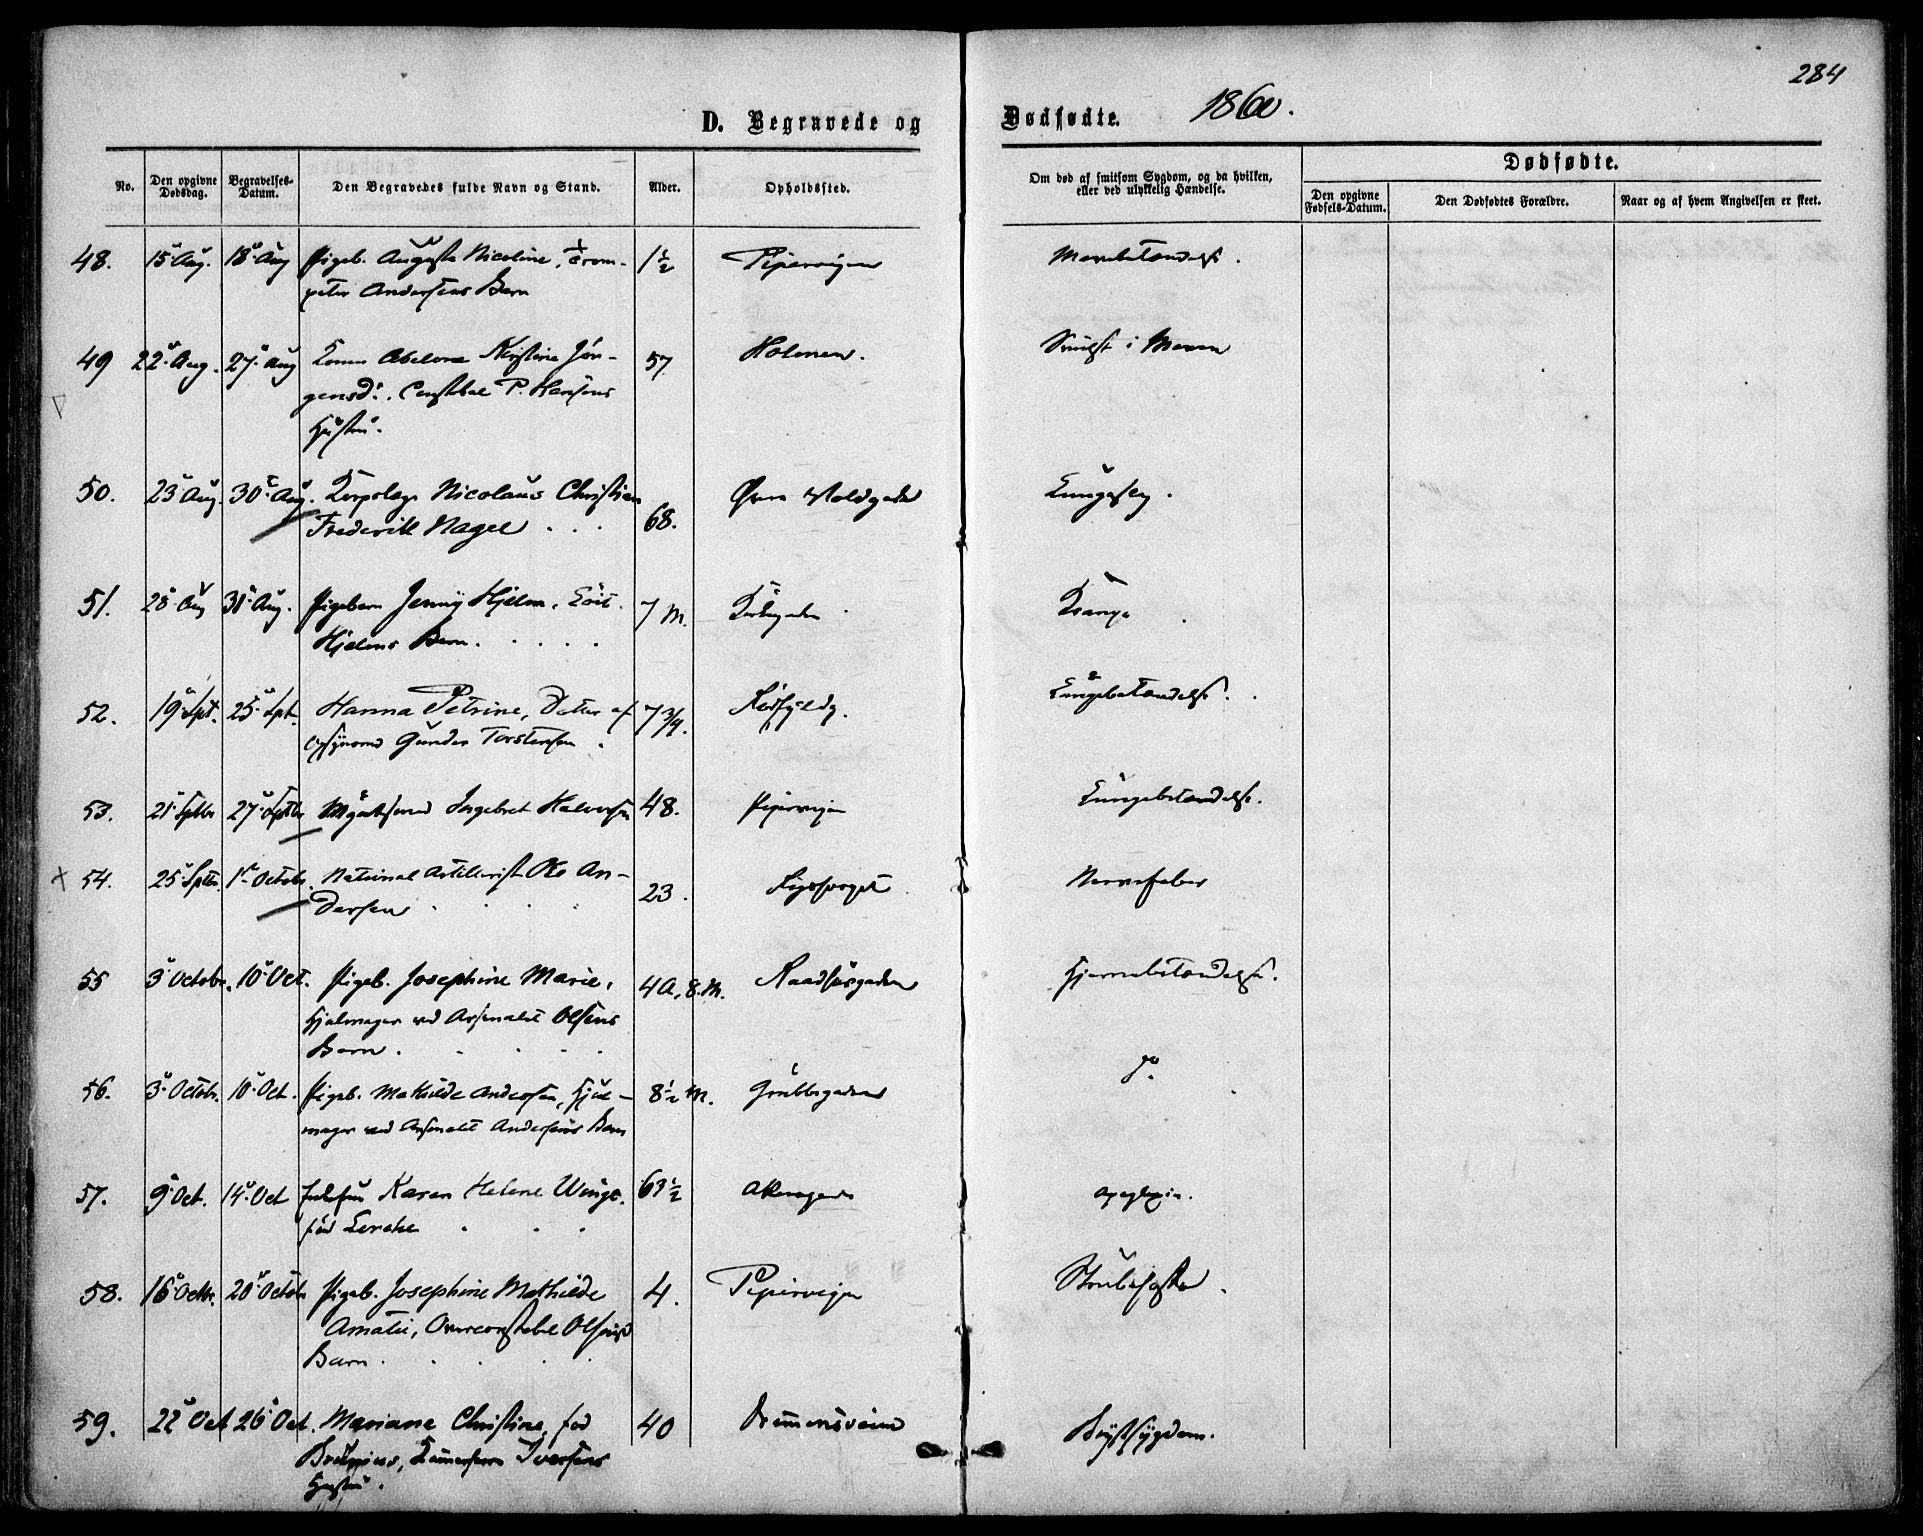 284
D. Begravede og Dødfødte. 1860.
No.
Den opgivne Dødsdag.
Begravelses-Datum.
Den Begravedes fulde Navn og Stand.
Alder.
Opholdssted.
Om død af smitsom Sygdom, og da hvilken, eller ved ulykkelig Hændelse.
Dødfødte.
Den opgivne Fødsels-Datum.
Den Dødfødtes Forældre.
Naar og af hvem Angivelsen er skeet.
48. 15 Aug. 18 Aug Pigeb. Augusta Nicoline, Trom- 1½ Pipervigen Mavebetændelse.
peter Andersens Barn
49 22 Aug. 27 Aug Kone Abelone Kirstine Jör- 57 Holmen. Svulst i Maven
gensd:, Constabel P. Hansens
Hustru.
50. 23 Aug. 30 Aug. Korpslæge Nicolaus Christian Øvre Voldgade Lungeslag.
Frederik Nagel 68.
51. 28 Aug 31 Aug. Pigebarn Jenny Hjelm, Hjelms Barn. 7 M. Kirkegaden Krampe
52. 19 Spt. 25 Spt. Hanna Petrine, Datter af 7 3/4. Lungebetændelse.
Opsynsmd Gunder Torstensen
53. 21 Septbr 27 Septbr Ingebret Halvorsen 48. Pipervigen Lungebetændelse.
54. 25 Septbr. 1 Octobr. National Artillerist Ole An- 23. Nervefeber
dersen
55 3 Octobr. 10 Oct. Pigeb. Josephine Marie, 4 A, 8 M. Raadhusgaden Hjernebetændelse.
Hjulmager ved Arsenalet Olsens
Barn.
56. 3 Octobr. 10 Oct. Pigeb. Mathilde Andersen, Hjul- 8½ M. Grubbegaden do.
mager ved Arsenalet Andersens Barn
57. 9 Oct. 14 Oct Enkefru Karen Helene Winge, 63½ Akersgade apoplexia.
född Lerche
58. 16 Octbr. 20 Octobr Pigeb. Josephine Mathilde 4. Pipervigen Strubehoste.
Amalie, Overconstabel Olsens
Barn.
59. 22 Oct 26 Oct. Mariane Christine, fød 40 Drammensveien Brystsygdom.
Iversens
Hustru.